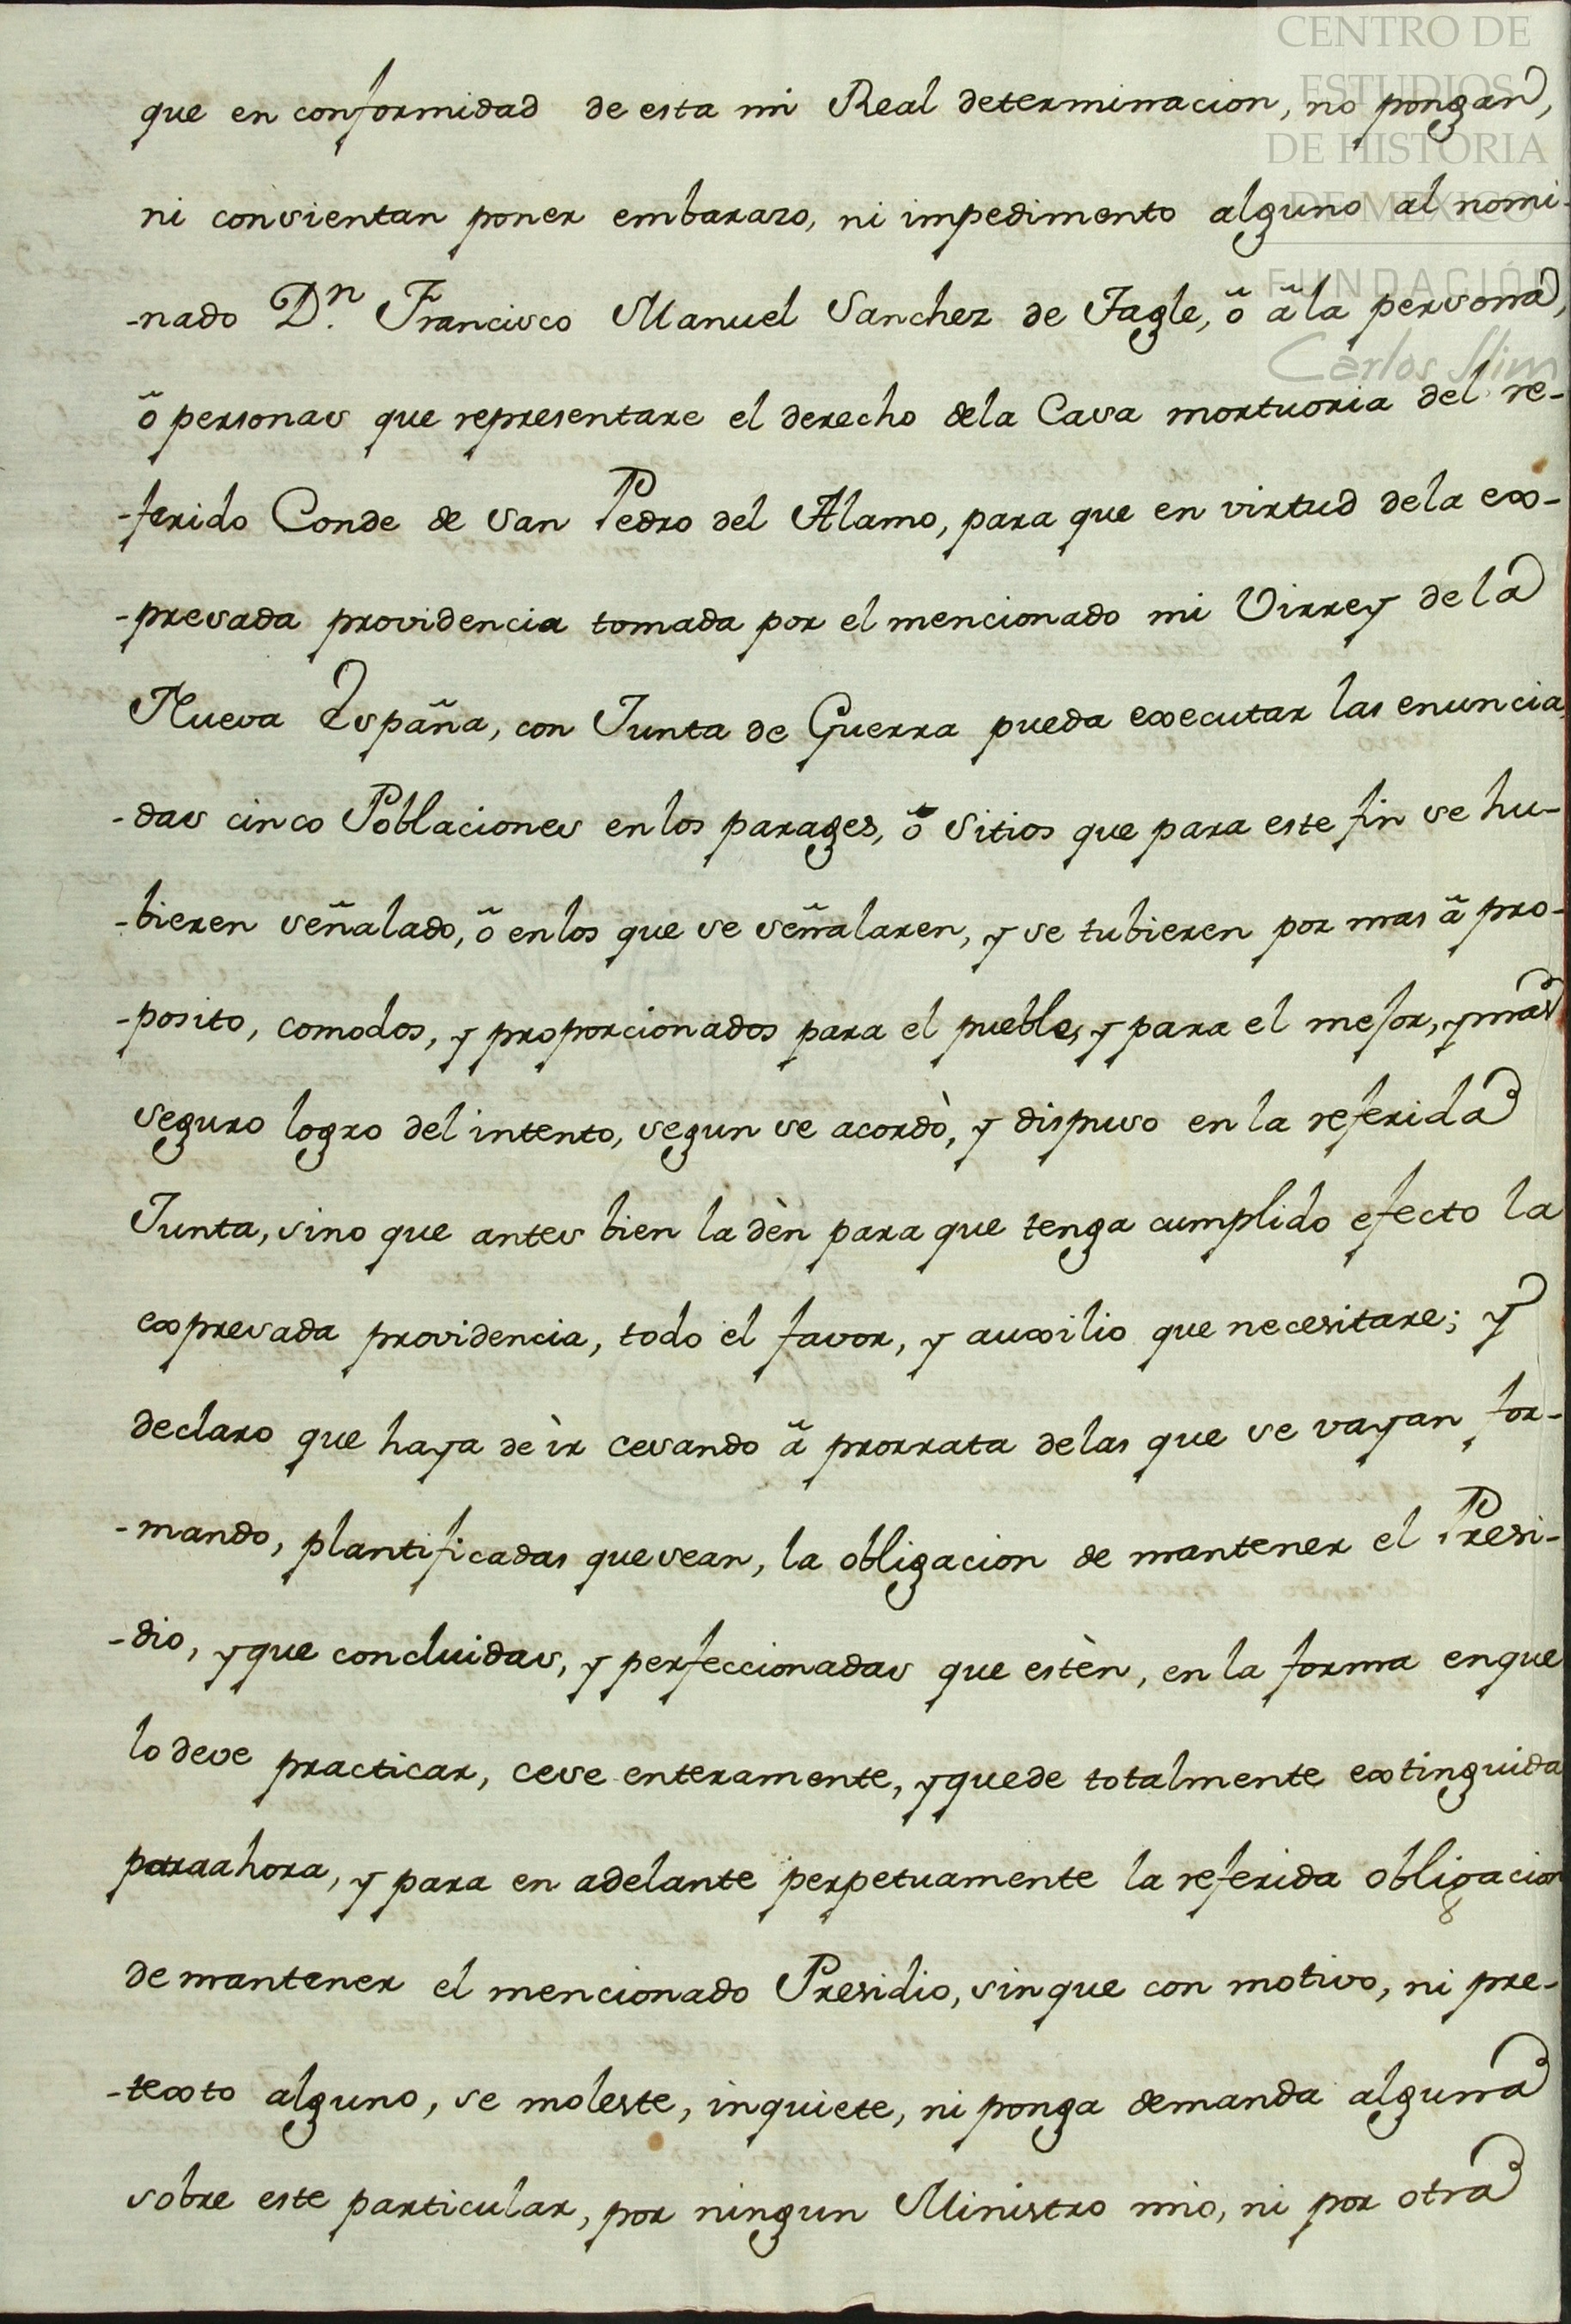 CENTRO DE
ESTUDIOS
DE HISTORIA
DE MEXICO
FUNDACIÓN
Carlos Slim
que en conformidad de esta mi Real determinacion, no pongan,
ni consientan poner embarazo, ni impedimento alguno al nomi-
-nado Dn. Francisco Manuel Sanchez de Tagle, õ ã la persona,
õ personas que representare el derecho dela Casa mortuoria del re-
-ferido Conde de San Pedro del Alamo, para que en virtud dela ex-
-presada providencia tomada por el mencionado mi Virrey de la
Nueva España, con Junta de Guerra pueda executar las enuncia-
-das cinco Poblaciones en los parages, õ Sitios que para este fin se hu-
-bieren señalado, õ en los que se señalaren, y se tubieren por mas ã pro-
-posito, comodos, y proporcionados para el pueble, y para el mejor, y mas
seguro logro del intento, segun se acordò, y dispuso en la referida
Junta, sino que antes bien la dèn para que tenga cumplido efecto la
expresada providencia, todo el favor, y auxilio que necesitare; y
declaro que haya de ìr cesando ã prorrata delas que se vayan for-
-mando, plantificadas que sean, la obligacion de mantener el Presi-
-dio, y que concluidas, y perfeccionadas que estèn, en la forma en que
lo deve practicar, cese enteramente, y quede totalmente extinguida
para ahora, y para en adelante perpetuamente la referida obligacion
de mantener el mencionado Presidio, sin que con motivo, ni pre-
-texto alguno, se moleste, inquiete, ni ponga demanda alguna
sobre este particular, por ningun Ministro mio, ni por otra